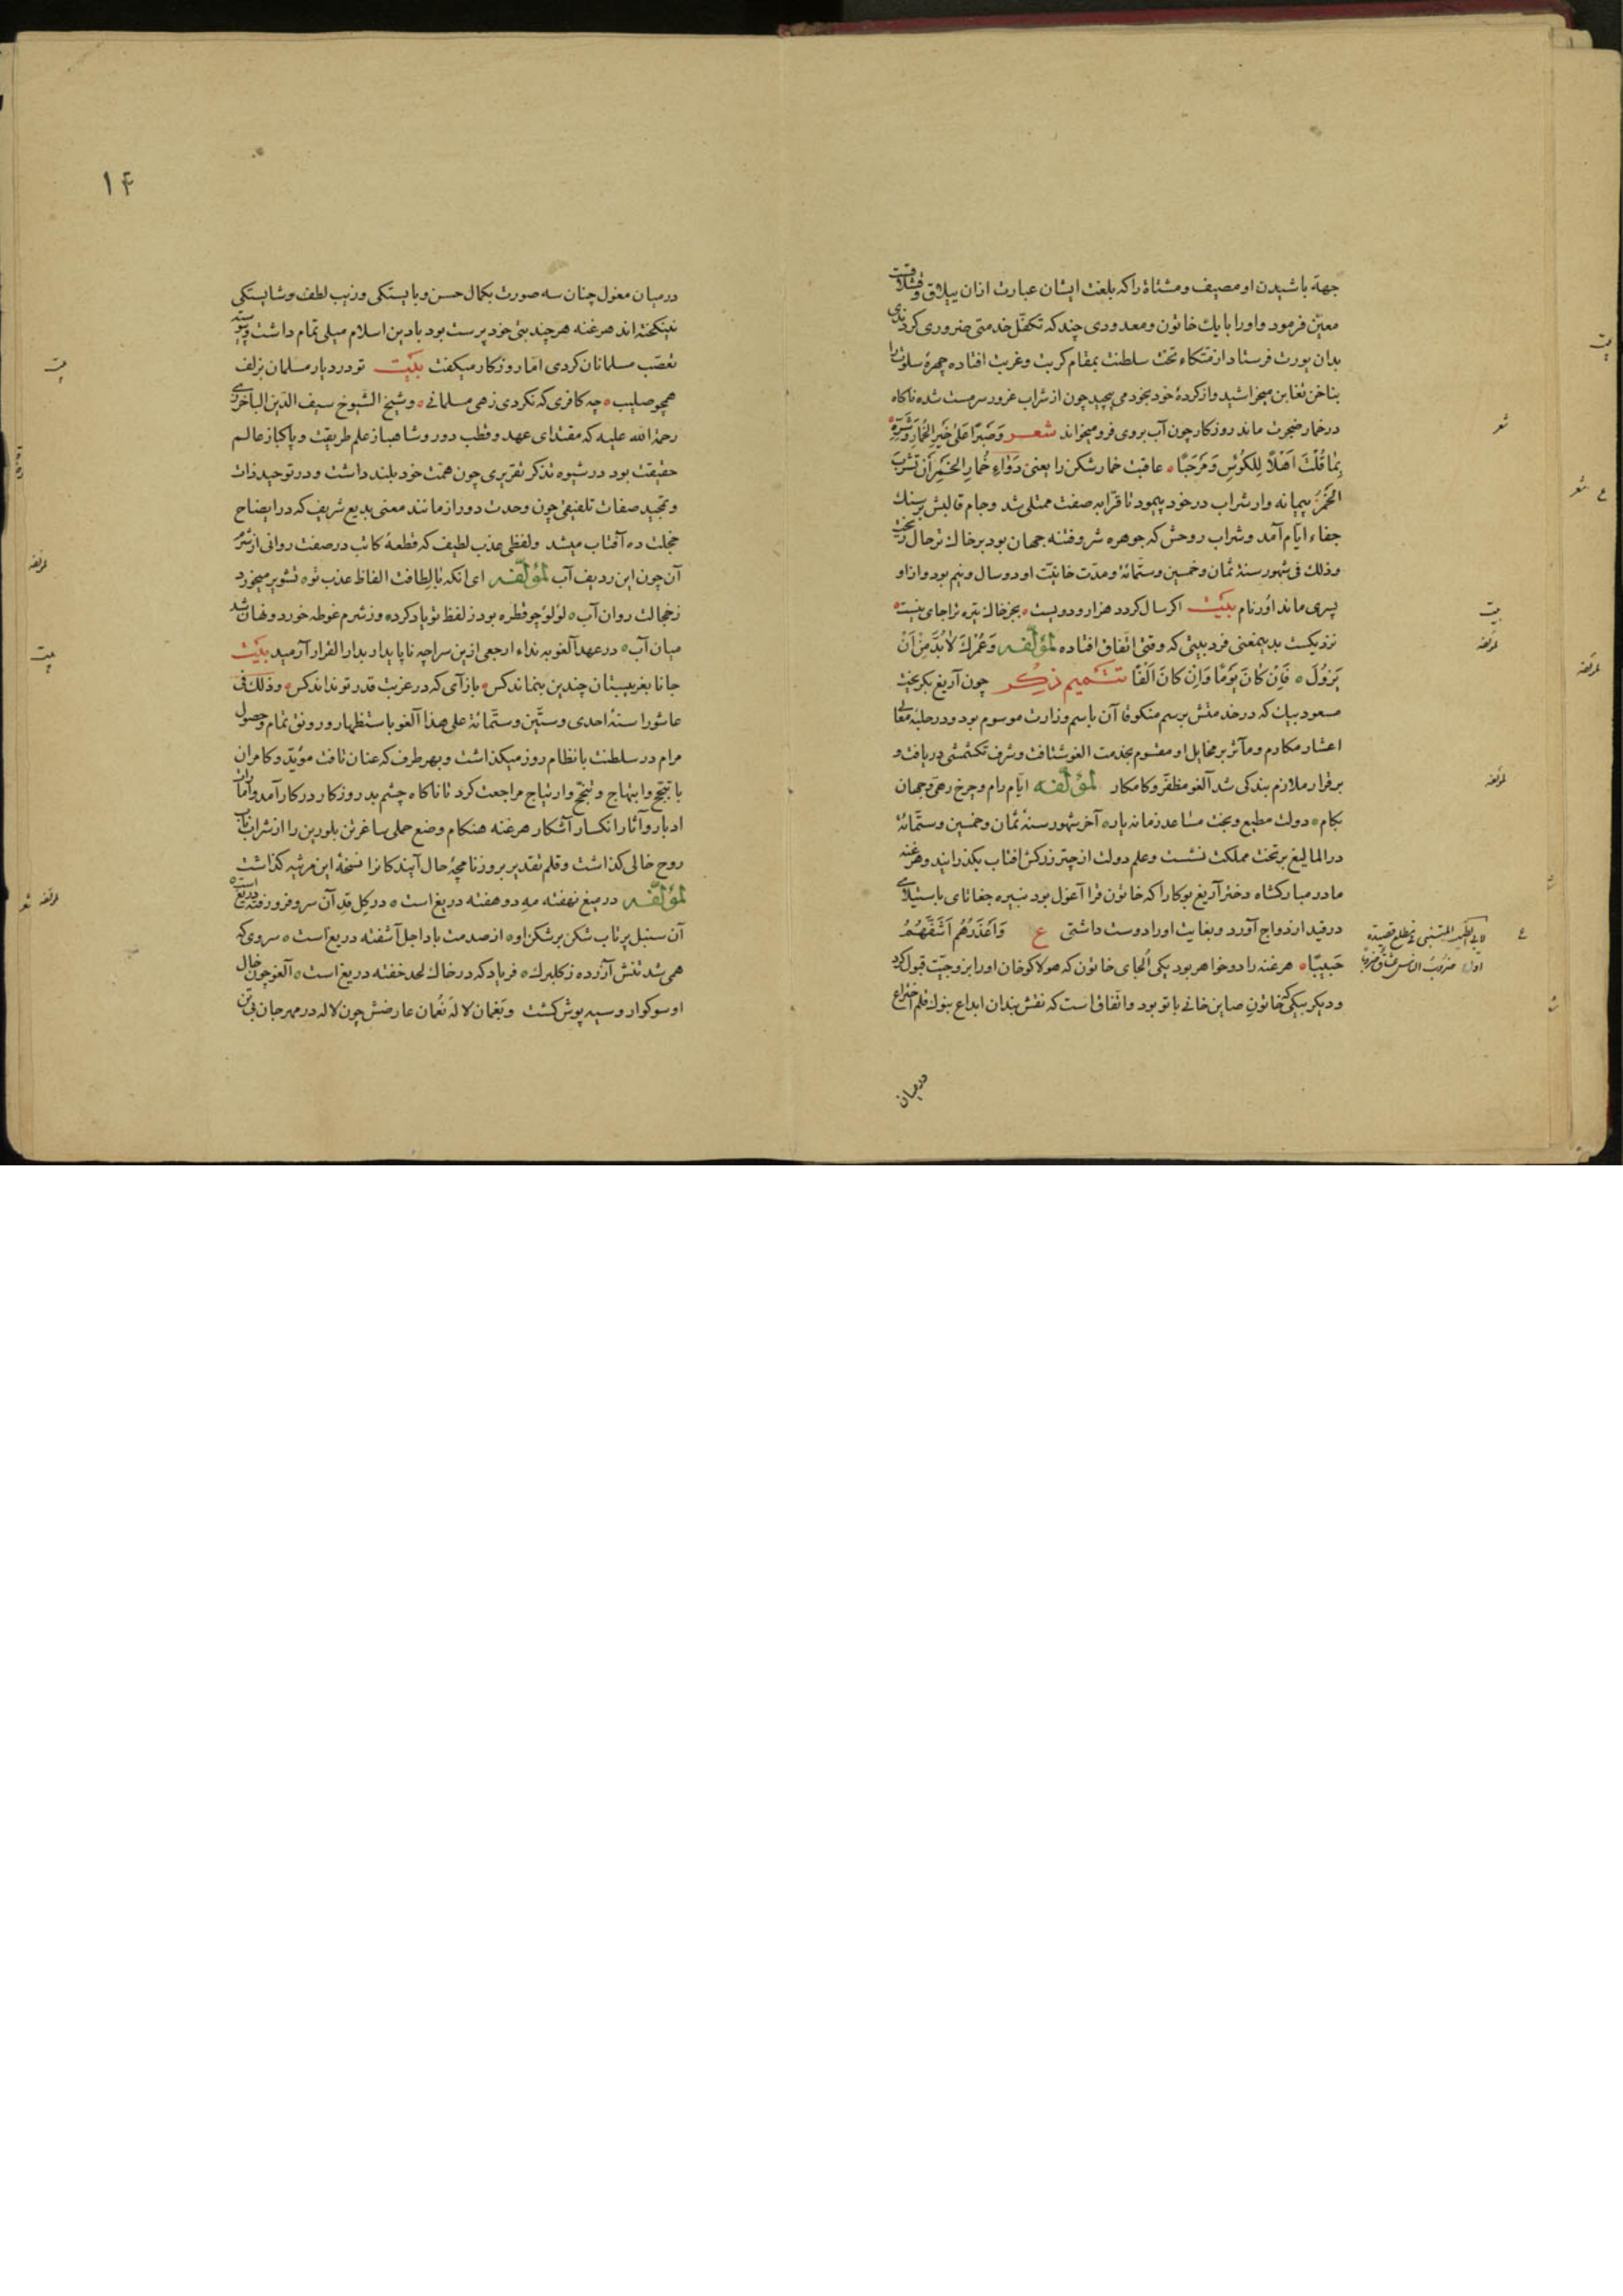 جهة باشیدن او مصیف و مشتاة را که بلغت ایشان عبارت ازان ییلاق و قشلاقست
معیّن فرمود و او را با یك خاتون و معدودی چند که تکفّل خدمتی ضروری کردندی
بدان یورت فرستاد از متّکاء تخت سلطنت بمقام کربت و غربت افتاده چهرهٔ سلوت را
بناخن تغابن میخراشید و از کردهٔ خود بخود می پیچید چون از شراب غرور سرمست شده ناکاه
در خمار ضجرت ماند روزکار چون آب بروی فرو میخواند شعر وَصَبرًا عَلیٰ خَیرِ الخُمارِ وَشَرِّهِ
بِمٰا قُلْتَ اَهْلًا لِلکُؤسِ وَمَرْحَبًا عاقبت خمارشکن را یعنی دَوٰاءِ خُمارِ الخَمْرِ اَن تَشْرَبَ
الخَمْرَ پیمانه وار شراب در خود پیمود تا قرّابه صفت ممتلی شد و جام قالبش بر سنك
جفاء ایّام آمد و شراب روحش که جوهره شر و فتنه جهان بود بر خاك ترحال ریخت
وذلك فی شهور سنة ثمان وخمسین وستّمائة و مدّت خانیّت او دو سال و نیم بود و از او
پسری ماند اوُرنام بیت اکر سال کردد هزار و دویست بجز خاك تیره ترا جای نیست
نزدیکست بدینمعنی فرد بیتی که وقتی اتّفاق افتاده لمؤلّفه وَعُمْرُكَ لاٰبُدَّ مِنْ اَنْ
یَزُولَ فَاِنْ کٰانَ یَوْمًا وَاِنْ کٰانَ اَلْفًا تتمیم ذِکر چون آریغ بکریخت
مسعود بیك که در خدمتش برسم منکوقا آن باسم وزارت موسوم بود و در حلبهٔ معٰلی
اعشار مکارم و مآثر بر مخایل او مقسوم بخدمت الغو شتافت و شرف تکشمشی دریافت و
برقرار ملازم بندکی شد الغو مظفّر و کامکار لمؤلّفه ایّام رام و چرخ رهی و جهان
بکام دولت مطیع و بخت مساعد زمانه یار آخر شهور سنهٔ ثمان وخمسین وستّمائة
در المالیغ بر تخت مملکت نشست و علم دولت از چتر زرکش افتاب بکذرانید و هرغنه
مادر مبارکشاه دختر آریغ بوکا را که خاتون قرا آغول بود نبیره جغاتای باستیلای
در قید ازدواج آورد و بغایت اورا دوست داشتی ع وَاَعْذَرُهُم اَشَفُّهُمُ
حَبِیبًا هرغنه را دو خواهر بود یکی اُلجای خاتون که هولاکوخان اورا بزوجیّت قبول کرد
و دیکر بیکی که خاتون صاین خانی باتو بود و اتّفاق است که نقش بندان ابداع بنوك قلم اختراع
در میان
شعر
ع شعر
بیت
لمؤلفه
لمؤلفه
لمؤلفه
ع
لابی الطیب المتنبی فی مطلع قصیدة
اولها ضروب الناس عشاق ضروبا
۱۴
در میان مغول چنان سه صورت بکمال حسن و بایستکی و زیب لطف و شایستکی
نینکیخته اند هرغنه هرچند بتی خود پرست بود بادین اسلام میلی تمام داشت و پیوسته
تعصّب مسلمانان کردی امّا روزکار میکفت بیت تو در دیار مسلمان بزلف
همچو صلیب چه کافری که نکردی زهی مسلمانی و شیخ الشیوخ سیف الدّین الباخرزی
رحمة الله علیه که مقتدای عهد و قطب دور و شاهباز علم طریقت و پاکباز عالم
حقیقت بود در شیوه تذکر تقریری چون همّت خود بلند داشت و در توحید ذات
و تمجید صفات تلفیقی چون وحدت دور از مانند معنی بدیع شریف که در ایضاح
خجلت ده آفتاب میشد و لفظی عذب لطیف که قطعهٔ کاتب در صفت روانی از شرم
آن چون این ردیف آب لمؤلّفه ای انکه بالِطافت الفاظ عذب تو تشویر میخورد
زخجالت روان آب لؤلؤ چو قطره بود زلفظ تو یاد کرد وز شرم غوطه خورد و نهان شد
میان آب در عهد آلغو به نداء ارجعی ازین سراچه ناپایدار بدار القرار آرمید بیت
جانا بغریبستان چندین بنماند کس بازآی که در غربت قدر تو نداند کس وذلك فی
عاشورا سنة احدی وستّین وستّمائة علی هذا آلغو باستظهار و رونق تمام و حصول
مرام در سلطنت بانظام روز میکذاشت و بهر طرف که عنان تافت مؤیّد و کامران
با تبجّح و ابتهاج و تبجّح و ارتیاح مراجعت کرد تا ناکاه چشم بد روزکار در کار آمد و امارات
ادبار و آثار انکسار آشکار هرغنه هنکام وضع حملی ساغر تن بلورین را از شراب ناب
روح خالی کذاشت و قلم تقدیر بر روزنامچهٔ حال آیندکانرا نسخهٔ این مرثیه کذاشت
لمؤلّفه در میغ نهفته مهِ دو هفته دریغ است در کِل قدِ آن سرو فرو رفته دریغ است
آن سنبل پرتاب شکن بر شکن او از صدمت باد اجل آشفته دریغ است سروی که
همی شد تنش آزرده ز کلبرك فریاد که در خاك لحد خفته دریغ است آلغو چون خال
او سوکوار و سیه پوش کشت و بَغمان لالهٔ نُعمان عارضش چون لاله در مهرجان بی تن
بیت
لمؤلفه
بیت
لمؤلفه شعر